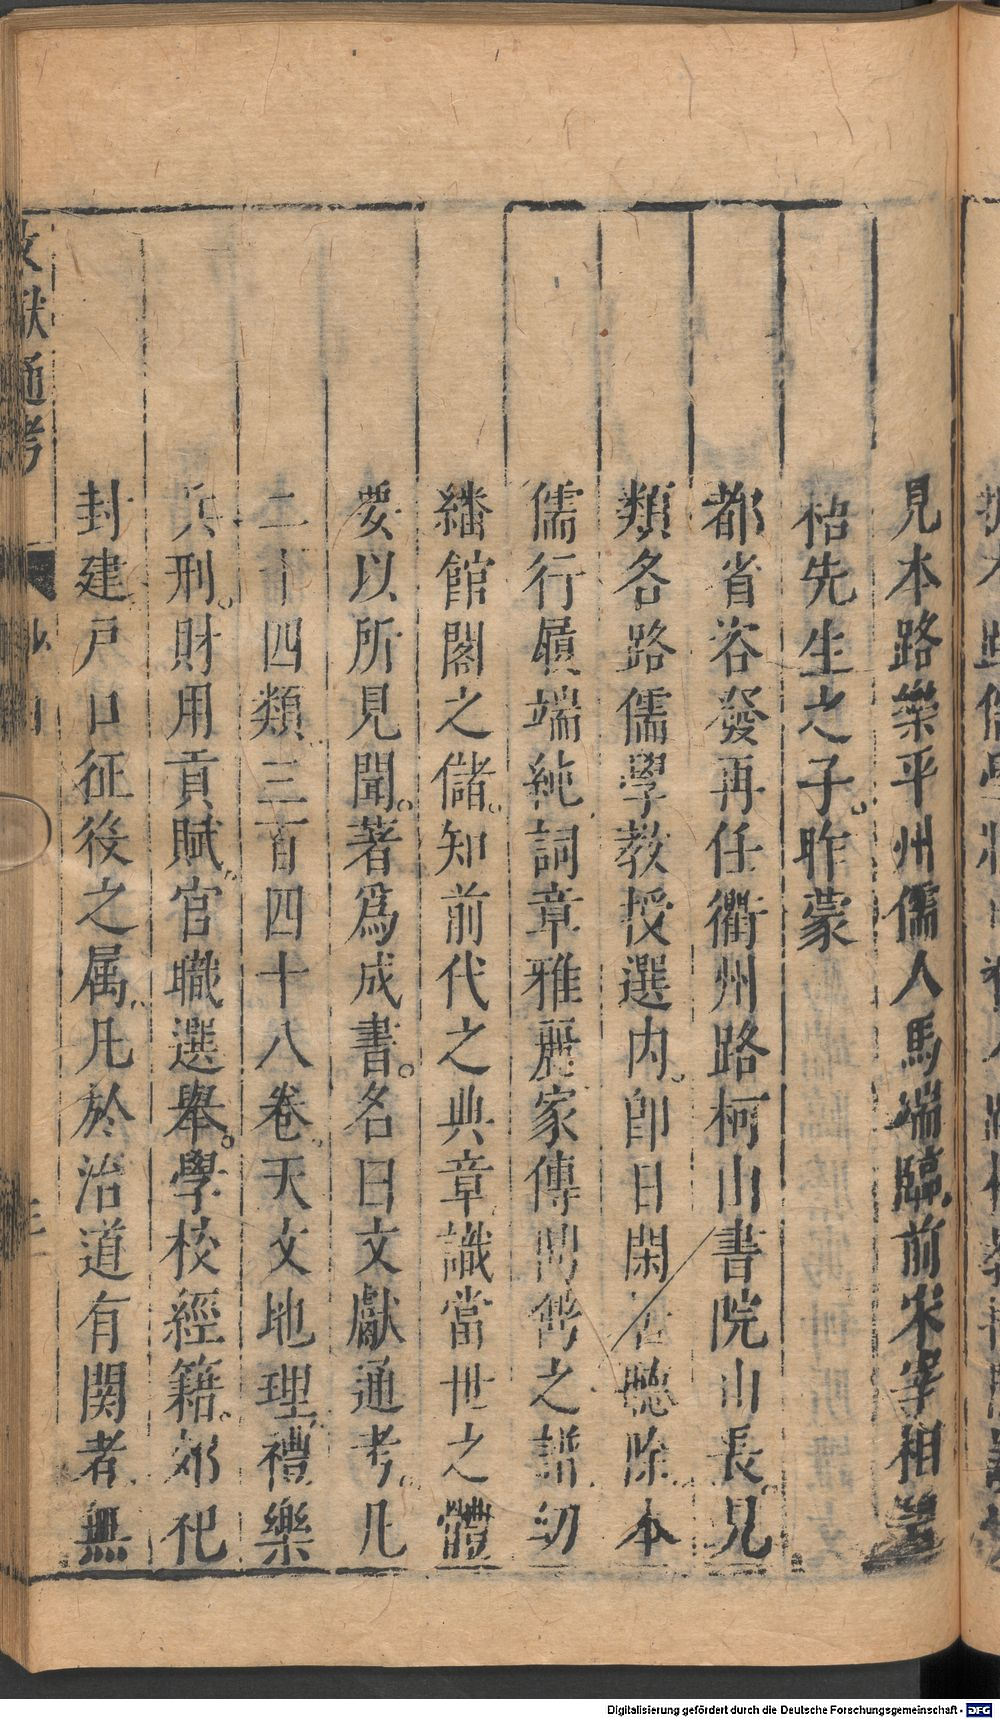 見本路樂平州儒人馬端臨前宋宰相碧
梧先生之子昨蒙
都省咨發再任衢州路柯山書院山長見
類各路儒學教授選內即日閑居聽除本
儒行履端純詞章雅麗家傳閥閱之譜幼
繙館閣之儲知前代之典章識當世之體
要以所見聞著爲成書名曰文獻通考凡
二十四類三百四十八卷天文地理禮樂
兵刑財用貢賦官職選舉學校經籍郊祀
封建戶口征役之属凡於治道有関者無
文獻通考
Digitalisierung gefördert durch die Deutsche Forschungsgemeinschaft - DFG